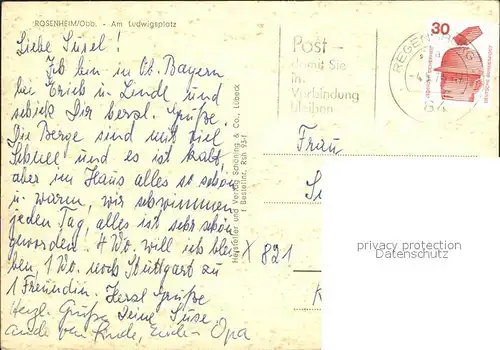 ROSENHEIM/Obb. - Am Ludwigsplatz
Liebe Susel!
Ich bin in Ob. Bayern
bei Erich u Linde und
schick Dir herzl. Grüße.
Die Berge sind mit viel
Schnee und es ist kalt,
aber im Haus alles so schön
u. warm, wir schwimmen
jeden Tag, alles ist sehr schön
geworden. 4 Wo. will ich blei
ben, 1 Wo. noch Stuttgart zu
1 Freundin. Herzl Grüße
Herzl. Grüße Deine Suse
Opa
Hersteller und Verlag Schöning & Co., Lübeck
Bestellnr. Rsh 93-f
X 821
Post -
damit Sie
in
Verbindung
bleiben
REGEN
84
30
DEUTSCHE BUNDESPOST
Frau
privacy protection
Datenschutz